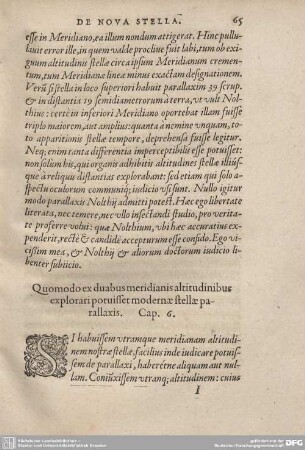 DE NOVA STELLA. 65
esse in Meridiano, ea illum nondum attigerat. Hinc pullu-
lauit error ille, in quem valde procliue fuit labi, tum ob exi-
guum altitudinis stellæ circa ipsum Meridianum cremen-
tum, tum Meridianæ lineæ minus exactam designationem.
Verũ si stella in loco superiori habuit parallaxim 39 scrup.
& in distantia 19 semidiametrorum à terra, vt vult Nol-
thius: certè in inferiori Meridiano oportebat illam fuisse
triplo maiorem, aut ampliùs: quanta à nemine vnquam, to-
to apparitionis stellæ tempore, deprehensa fuisse legitur.
Neq; enim tanta differentia imperceptibilis esse potuisset:
non solùm his, qui organis adhibitis altitudines stellæ illiús-
que à reliquis distantias explorabant: sed etiam qui solo a-
spectu oculorum communiq; iudicio vsi sunt. Nullo igitur
modo parallaxis Nolthij admitti potest. Hæc ego libertate
literata, nec temere, nec vllo insectandi studio, pro verita-
te proferre volui: quæ Nolthium, vbi hæc accuratius ex-
penderit, rectè & candidè accepturum esse confido. Ego vi-
cissim mea, & Nolthij & aliorum doctorum iudicio li-
benter subiicio.
Quomodo ex duabus meridianis altitudinibus
explorari potuisset modernæ stellæ pa-
rallaxis. Cap. 6.
SI habuissem vtramque meridianam altitudi-
nem nostræ stellæ, facilius inde iudicare potuis-
sem de parallaxi, haberétne aliquam aut nul-
lam. Coniũxissem vtranq; altitudinem: cuius
I